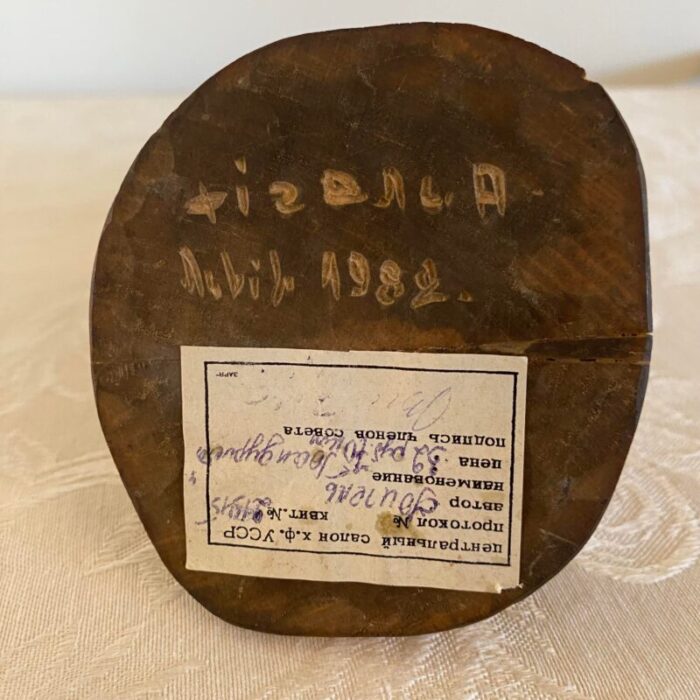 фігель А
Львів 1982.
центральный салон х.ф. УССР
протокол № квит.№ 21915
автор Фигель
наименование "Бандурист"
цена 32 руб
подпись членов совета